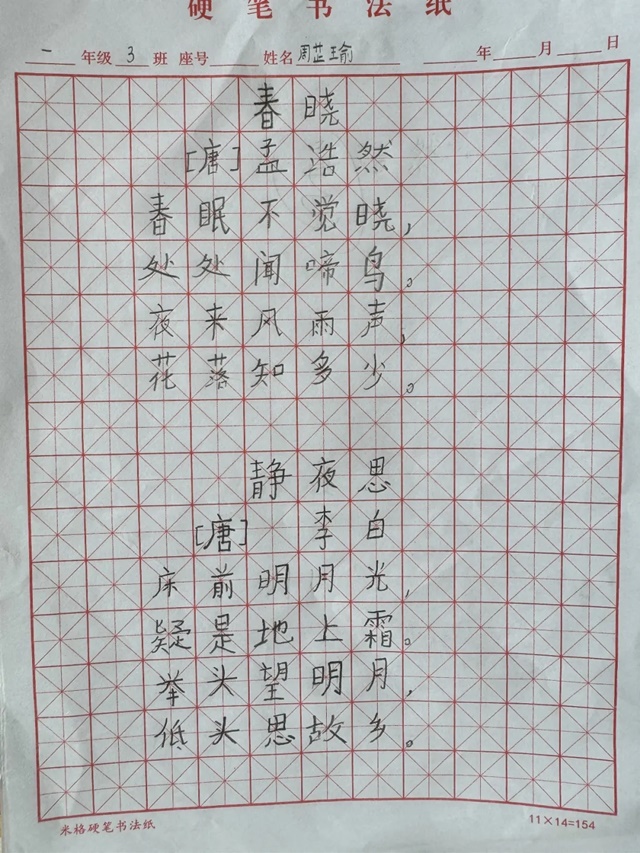 硬笔书法纸
一年级 3 班 座号 姓名 周芷瑜 年 月 日
春晓
[唐] 孟浩然
春眠不觉晓，
处处闻啼鸟。
夜来风雨声，
花落知多少。
静夜思
[唐] 李白
床前明月光，
疑是地上霜。
举头望明月，
低头思故乡。
米格硬笔书法纸 11×14=154